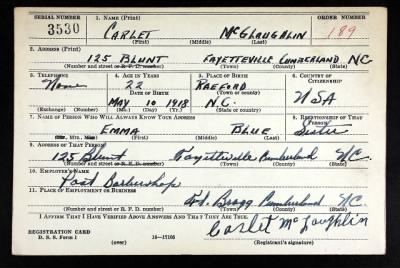 SERIAL NUMBER 1. NAME (Print) ORDER NUMBER
3530 CARLET McGLAUGHLIN 189
(First) (Middle) (Last)
2. ADDRESS (Print)
125 BLUNT FAYETTEVILLE CUMBERLAND NC
(Number and street or R. F. D. number) (Town) (County) (State)
3. TELEPHONE 4. AGE IN YEARS 5. PLACE OF BIRTH 6. COUNTRY OF CITIZENSHIP
None 22 RAEFORD
DATE OF BIRTH (Town or county) USA
MAY 10 1918 N.C.
(Exchange) (Number) (Mo.) (Day) (Yr.) (State or country)
7. NAME OF PERSON WHO WILL ALWAYS KNOW YOUR ADDRESS 8. RELATIONSHIP OF THAT PERSON
EMMA BLUE Sister
(Mr., Mrs., Miss) (First) (Middle) (Last)
9. ADDRESS OF THAT PERSON
125 Blunt Fayetteville Cumberland N.C.
(Number and street or R. F. D. number) (Town) (County) (State)
10. EMPLOYER'S NAME
Post Barbershop
11. PLACE OF EMPLOYMENT OR BUSINESS
Ft. Bragg Cumberland N.C.
(Number and street or R. F. D. number) (Town) (County) (State)
I AFFIRM THAT I HAVE VERIFIED ABOVE ANSWERS AND THAT THEY ARE TRUE.
Carlet McLaughlin
REGISTRATION CARD
D. S. S. Form 1 (over) 16—17105 (Registrant's signature)